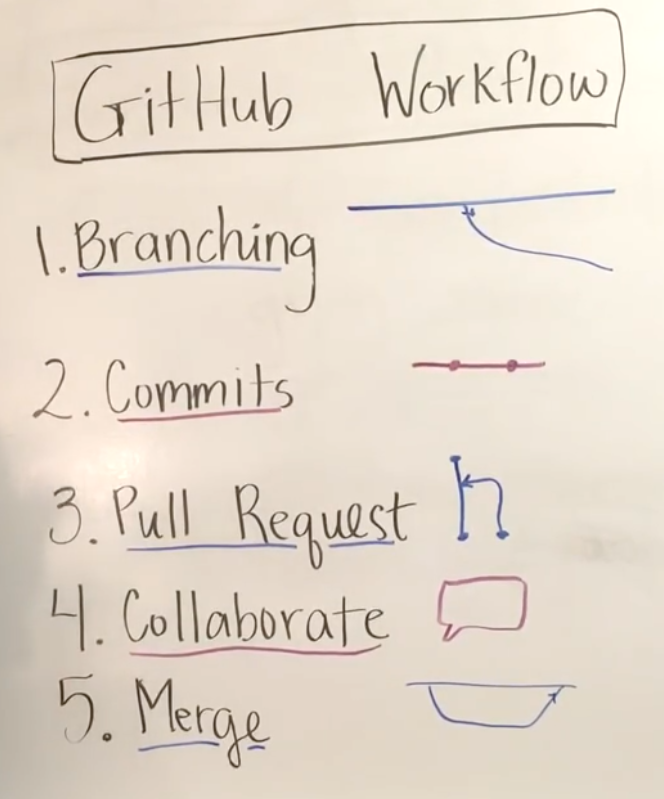 GitHub Workflow
1. Branching
2. Commits
3. Pull Request
4. Collaborate
5. Merge